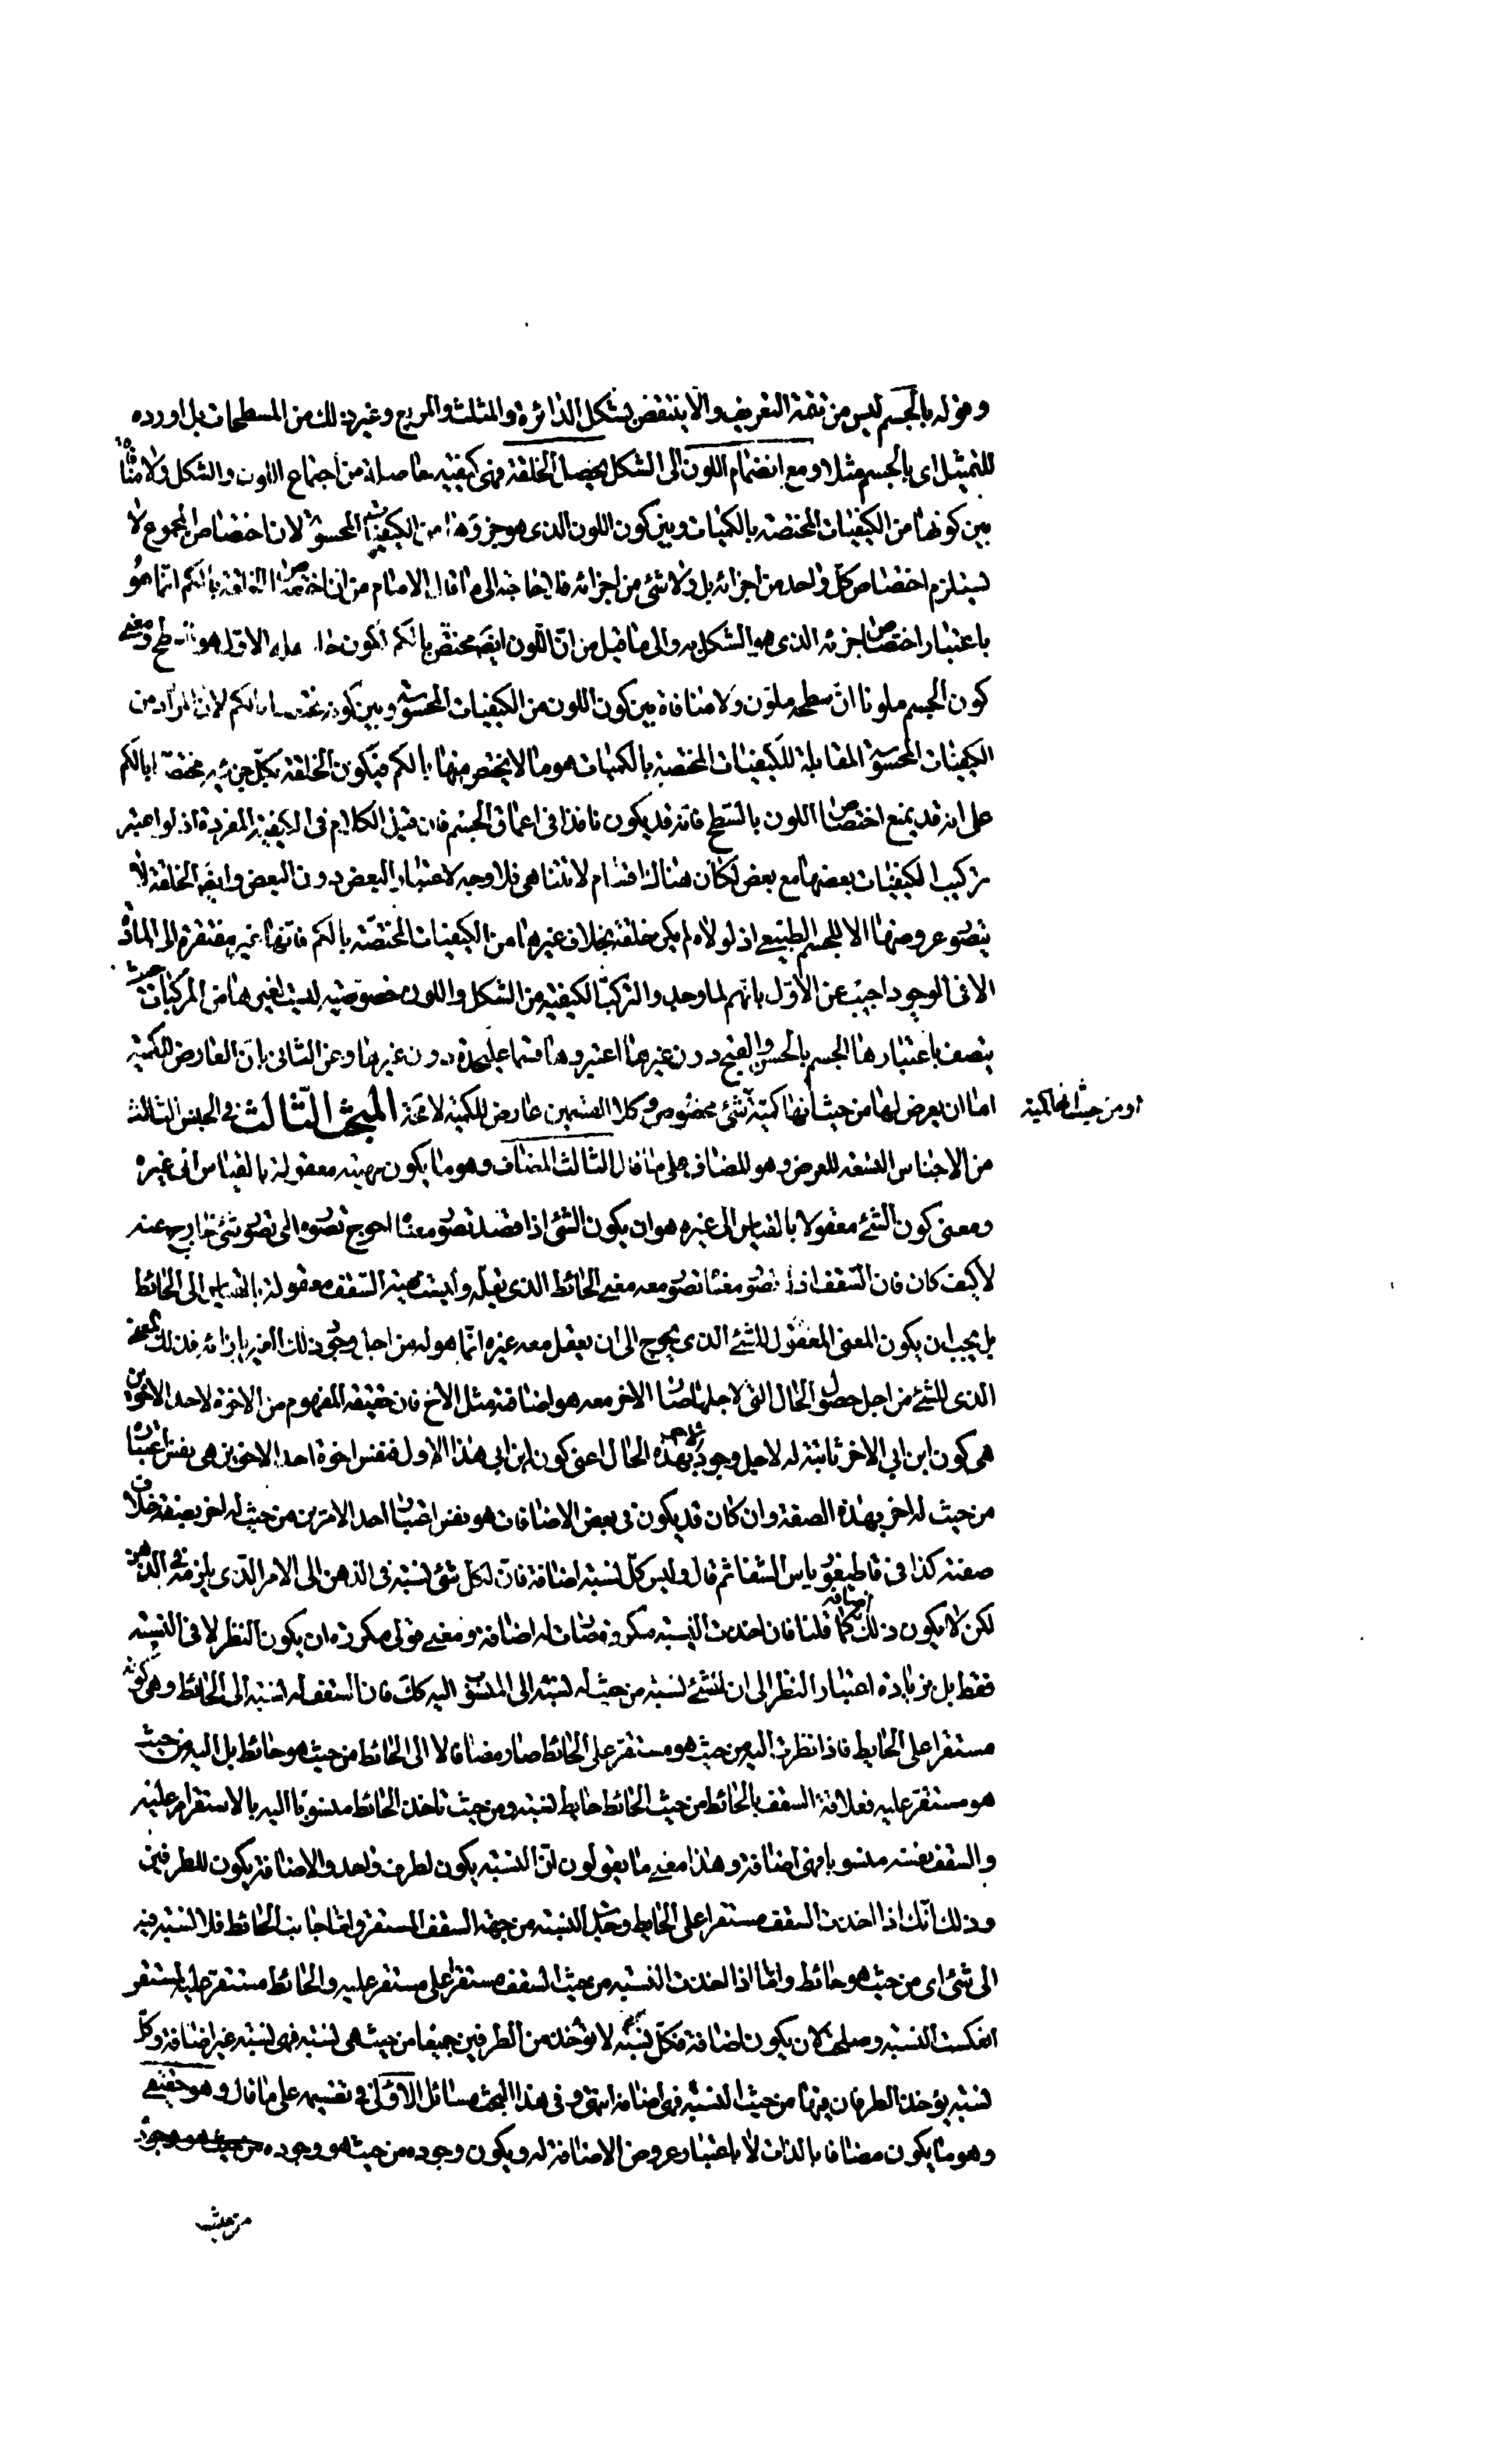 وقوله بالجسم ليس من تتمة التعريف والا ينتقض بشكل الدائرة والمثلث والمربع وغير ذلك من المسطحات بل اورده
للتمثيل اى بالجسم مثلا ومع انضمام اللون الى الشكل يحصل الخلقة فهى كيفية حاصلة من اجتماع اللون والشكل ولا منافاة
بين كونها من الكيفيات المختصة بالكميات وبين كون اللون الذى هو جزؤها من الكيفيات المحسوسة لان اختصاص المجموع لا
يستلزم اختصاص كل واحد من اجزائه بل ولا شئ من اجزائه فلا حاجة الى ما قال الامام من ان اختصاص الخلقة بالكم انما هو
باعتبار اختصاص جزئه الذى هو الشكل به والى ما قيل من ان اللون ايضا مختص بالكم لكون حامله الاول هو السطح ومعنى
كون الجسم ملونا ان سطحه ملون ولا منافاة بين كون اللون من الكيفيات المحسوسة وبين كونه مختصا بالكم لان المراد من
الكيفيات المحسوسة المقابلة للكيفيات المختصة بالكميات هو ما لا يختص منها بالكم فيكون الخلقة بكل جزئيه مختصة بالكم
على انه قد يمنع اختصاص اللون بالسطح فانه قد يكون نافذا فى اعماق الجسم فان قيل الكلام فى الكيفية المفردة اذ لو اعتبر
تركيب الكيفيات بعضها مع بعض لكان هناك اقسام لا تتناهى فلا وجه لاعتبار البعض دون البعض وايضا الخلقة لا
يتصور عروضها الا للجسم الطبيعى اذ لولاه لم يكن خلقة بخلاف غيرها من الكيفيات المختصة بالكم فانها غير مفتقرة الى المادة
الا فى الوجود اجيب عن الاول بانهم لما وجدوا لتركب الكيفية من الشكل واللون خصوصية ليست لغيرها من المركبات حيث
يتصف باعتبارها الجسم بالحسن والقبح دون غيرها اعتبروها قسما عليحدة دون غيرها وعن الثانى بان العارض للكمية
اما ان يعرض لها من حيث انها كمية شئ مخصوص وكلا القسمين عارض للكمية لا محة المبحث الثالث فى الجنس الثالث
او من حيث انها كمية
من الاجناس التسعة للعرض وهو المضاف على ما قال الثالث المضاف وهو ما يكون مهيته معقولة بالقياس الى غيره
ومعنى كون الشئ معقولا بالقياس الى غيره هو ان يكون الشئ اذا قصد تصور معناه احوج تصوره الى تصور شئ خارج عنه
لا كيف كان فان السقف اذا تصور معناه تصور معه معنى الحائط الذى يقله وليست مهية السقف معقولة بالقياس الى الحائط
بل يجب ان يكون المعنى المعقول للشئ الذى يحوج الى ان يعقل معه غيره انما هو له من اجل وجود ذلك الغير بازائه فذلك المعنى
الذى للشئ من اجل حصول الحال التى لاجلها صار الاخر معه هو اضافة مثل الاخ فان حقيقة المفهوم من الاخوة لاحد الاخوين
هى كون ابن ابى الاخر ثابتة له لاجل وجود الاخر بهذه الحال اعنى كون ابن ابى هذا الاول فنفس اخوة احد الاخوين هى نفس اعتباره
من حيث له اخر بهذه الصفة وان كان قد يكون فى بعض الاضافات هو نفس اعتبار احد الامرين من حيث له اخر بصفة خلاف
صفته كذا فى قاطيغورياس الشفا ثم قال وليس كل نسبة اضافة فان لكل شئ نسبة فى الذهن الى الامر الذى يلزمه فى الذهن
لكن لا يكون ذلك اضافة كما قلنا فان اخذت النسبة مكررة صارت له اضافة ومعنى قولى مكررة ان يكون النظر لا فى النسبة
فقط بل بزيادة اعتبار النظر الى ان للشئ نسبة من حيث له نسبة الى المنسوب اليه كك فان السقف له نسبة الى الحائط وهى كونه
مستقرا على الحايط فاذا نظرت اليه من حيث هو مستقر على الحائط صار مضافا لا الى الحائط من حيث هو حائط بل اليه من حيث
هو مستقر عليه فعلاقة السقف بالحائط من حيث الحائط حايط نسبة ومن حيث تاخذ الحائط منسوبا اليه بالاستقرار عليه
والسقف بنفسه منسوبا فهى اضافة وهذا معنى ما يقولون ان النسبة يكون لطرف واحد والاضافة يكون للطرفين
وذلك انك اذا اخذت السقف مستقرا على الحايط وجدت النسبة من جهة السقف المستقر واما جانب الحائط فلا نسبة فيه
الى شئ اى من حيث هو حائط واما اذا اخذت النسبة من حيث السقف مستقر على مستقر عليه والحائط مستقر عليه لمستقر
انعكست النسبة وصلحت لان يكون اضافة فكل نسبة لا يؤخذ من الطرفين جميعا من حيث هى نسبة فهى نسبة غير اضافة وكل
نسبة يؤخذ الطرفان فيها من حيث النسبة فهى اضافة انتهى وفى هذا المبحث مسائل الاولى فى تقسيمه على ما قال وهو حقيقى
وهو ما يكون مضافا بالذات لا باعتبار عروض الاضافة له ويكون وجوده من حيث هو وجوده
من حيث